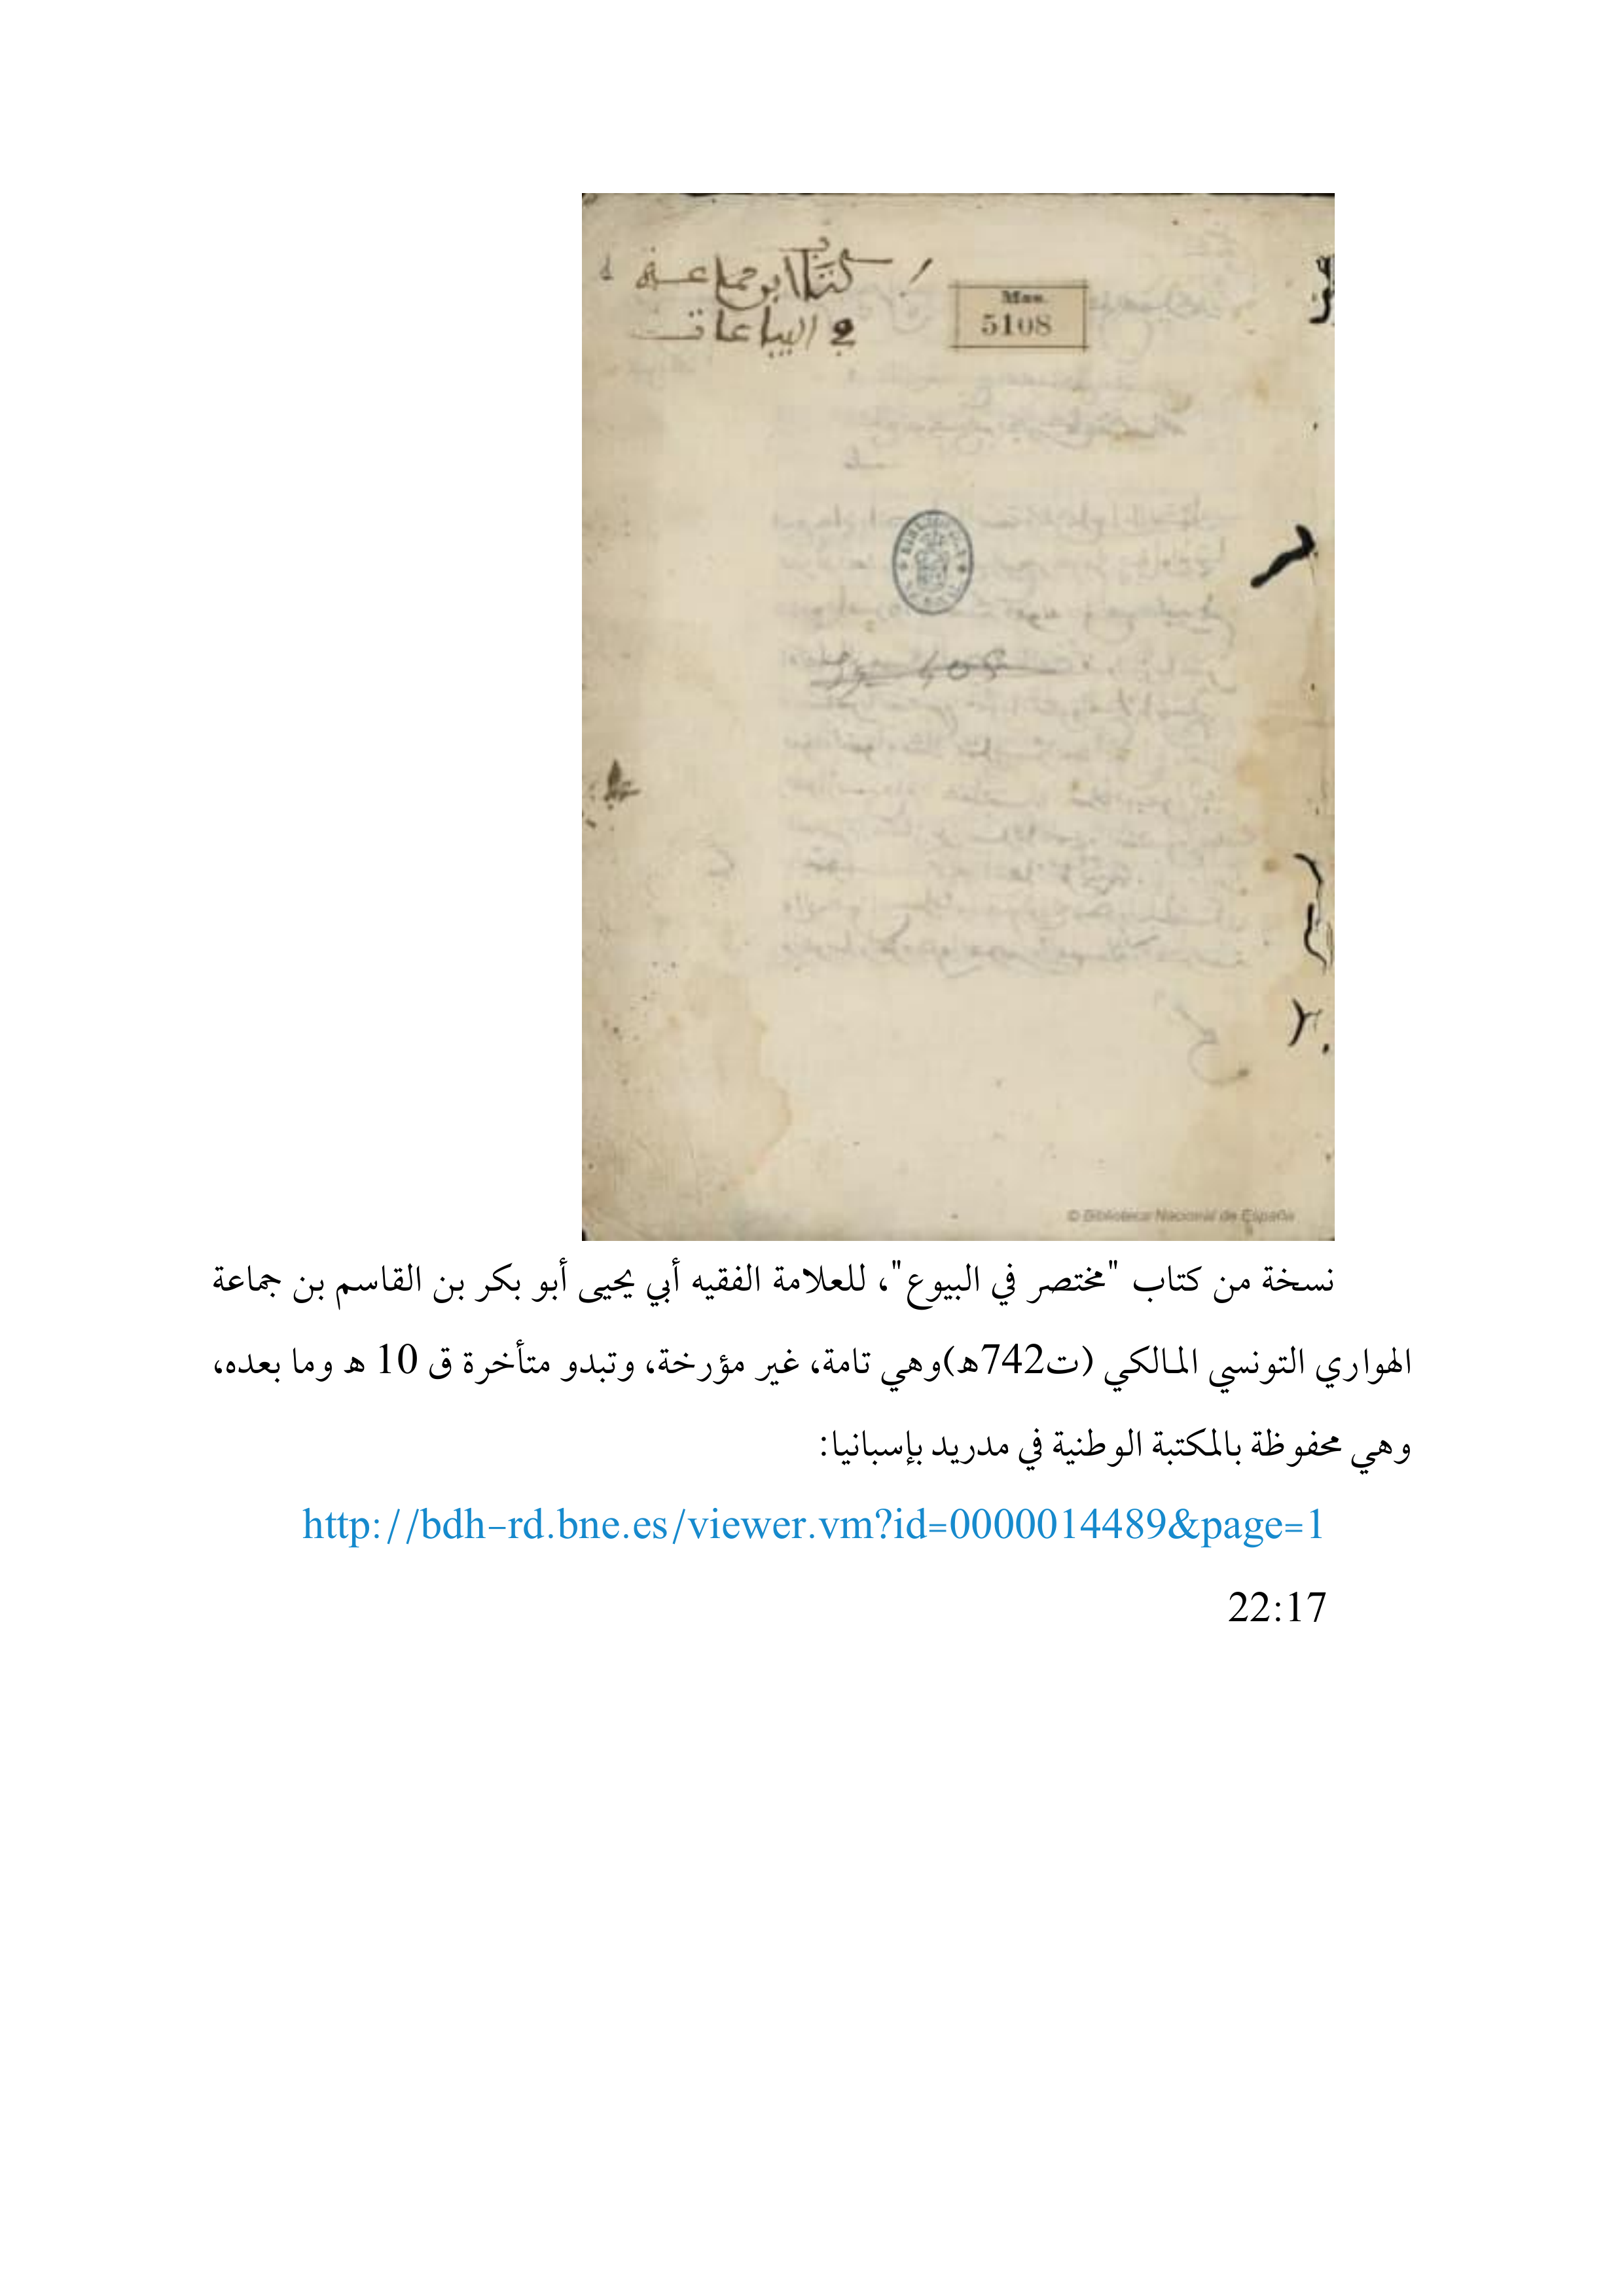 كتاب ابن جماعة
في البياعات
Mss.
5108
© Biblioteca Nacional de España
نسخة من كتاب "مختصر في البيوع"، للعلامة الفقيه أبي يحيى أبو بكر بن القاسم بن جماعة
الهواري التونسي المالكي (ت742ه)وهي تامة، غير مؤرخة، وتبدو متأخرة ق 10 ه وما بعده،
وهي محفوظة بالمكتبة الوطنية في مدريد بإسبانيا:
http://bdh-rd.bne.es/viewer.vm?id=0000014489&page=1
22:17